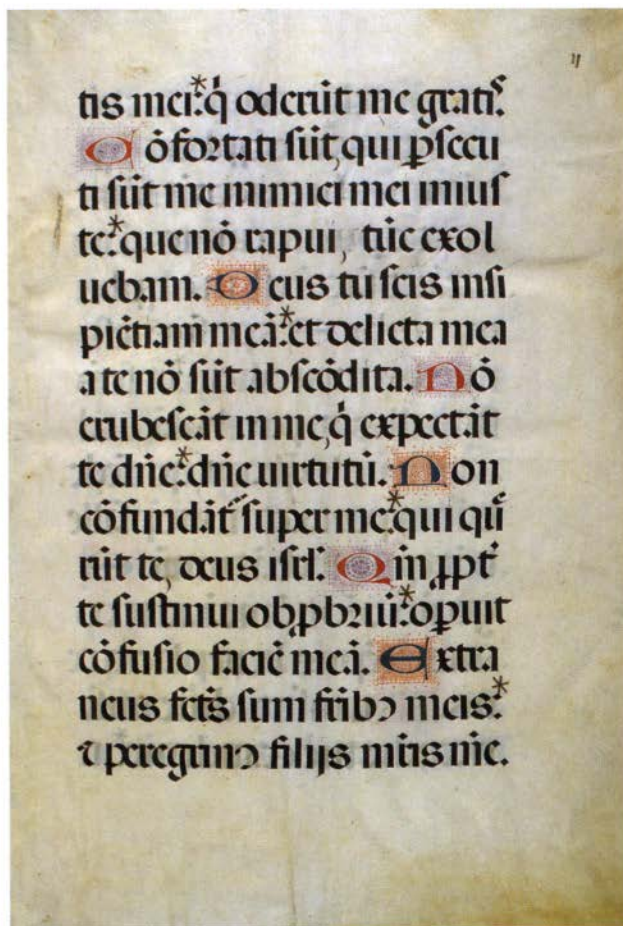 ıj
tis mei:* q̇ oderũt me gratis:
Cõfortati sũt, qui p̱secu
ti sũt me inimici mei inius
te:* que nõ rapui, tũc exol
uebam. Deus tu scis insi
piẽtiam meã:* et delicta mea
a te nõ sũt abscõdita. Nõ
erubescãt in me, q̇ expectãt
te dñe:* dñe uirtutũ. Non
cõfundãt᷑ super me:* qui qũ
rũt te, deus isrl̃. Qm̃ ꝓpt᷑
te sustinui obꝓbriũ:* oꝑuit
cõfusio faciẽ meã. Extra
neus fct̃s sum frĩbꝰ meis:*
⁊ peregrinꝰ filijs mr̃is mẽ.